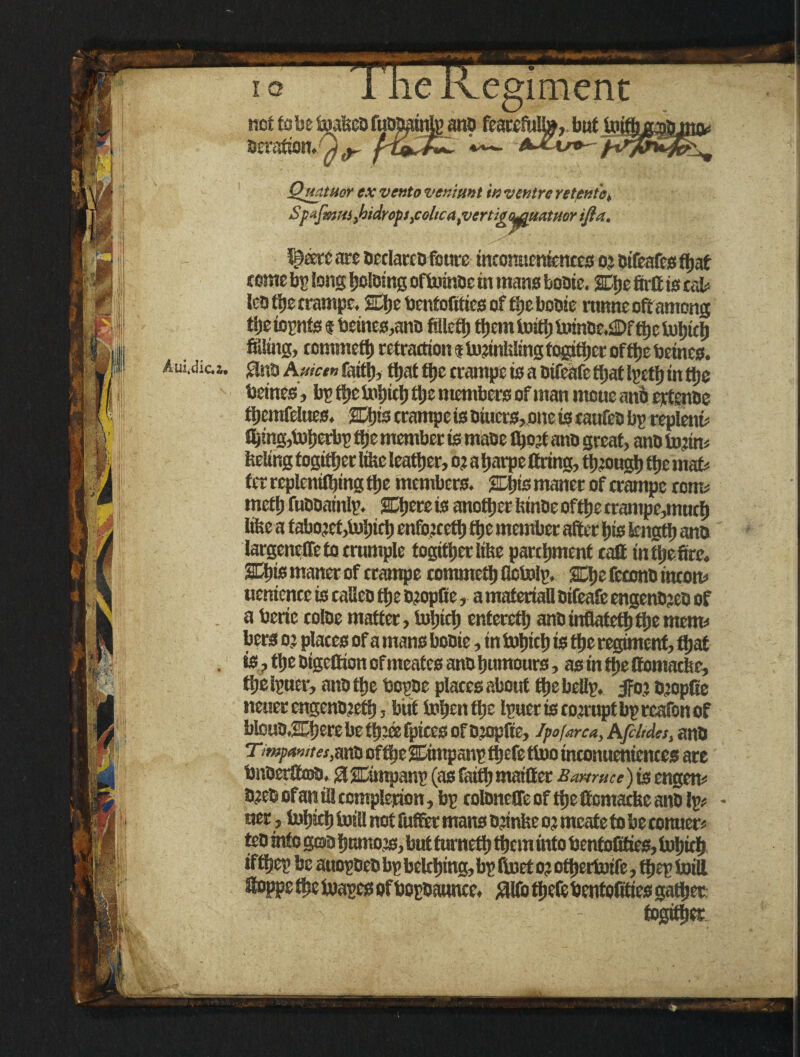 10 The Regiment
not to be waked suddainly and fearefully, but with good mo-
deration.
Quatuor ex vento veniunt in ventre retento,
Spasmus, hidrops, colica, vertigo, quatuor ista.
Heere are declared foure inconueniences or diseases that
come by long holding of winde in mans bodie. The first is cal-
led the crampe. The ventosities of the bodie runne oft among
the ioynts & veines, and filleth them with winde. Of the which
filling, commeth retraction & wrinkling togither of the veines.
Aui.dic.2. And Auicen saith, that the crampe is a disease that lyeth in the
veines, by the which the members of man moue and extende
themselues. This crampe is diuers, one is caused by repleni-
shing, wherby the member is made short and great, and wrin-
keling togither like leather, or a harpe string, through the mat-
ter replenishing the members. This maner of crampe com-
meth suddainly. There is another kinde of the crampe, much
like a taboret, which enforceth the member after his length and
largenesse to crumple togither like parchment cast in the fire.
This maner of crampe commeth slowly. The second incon-
uenience is called the dropsie, a materiall disease engendred of
a verie colde matter, which entereth and inflateth the mem-
bers or places of a mans bodie, in which is the regiment, that
is, the digestion of meates and humours, as in the stomacke,
the lyuer, and the voyde places about the belly. For dropsie
neuer engendreth, but when the lyuer is corrupt by reason of
bloud. There be three spices of dropsie, Iposarca, Asclides, and
Timpanites, and of the Timpany these two inconueniences are
vnderstood. A Timpany (as saith maister Bartruce) is engen-
dred of an ill complexion, by coldnesse of the stomacke and ly-
uer, which will not suffer mans drinke or meate to be conuer-
ted into good humors, but turneth them into ventosities, which
if they be auoyded by belching, by swet or otherwise, they will
stoppe the wayes of voydaunce. Also these ventosities gather
togither